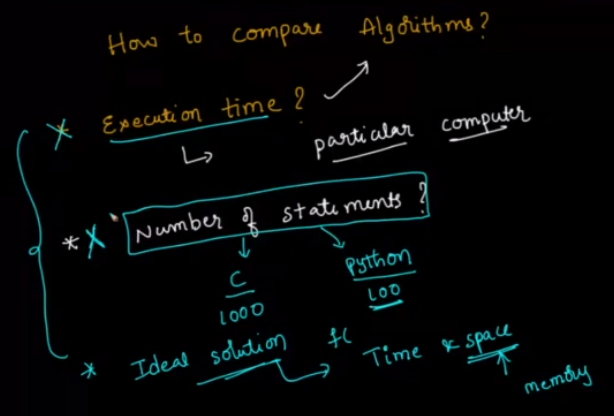 How to compare Algorithms?
* Execution time?
particular computer
* X Number of statements?
C
1000
python
100
* Ideal solution
Time & space
memory